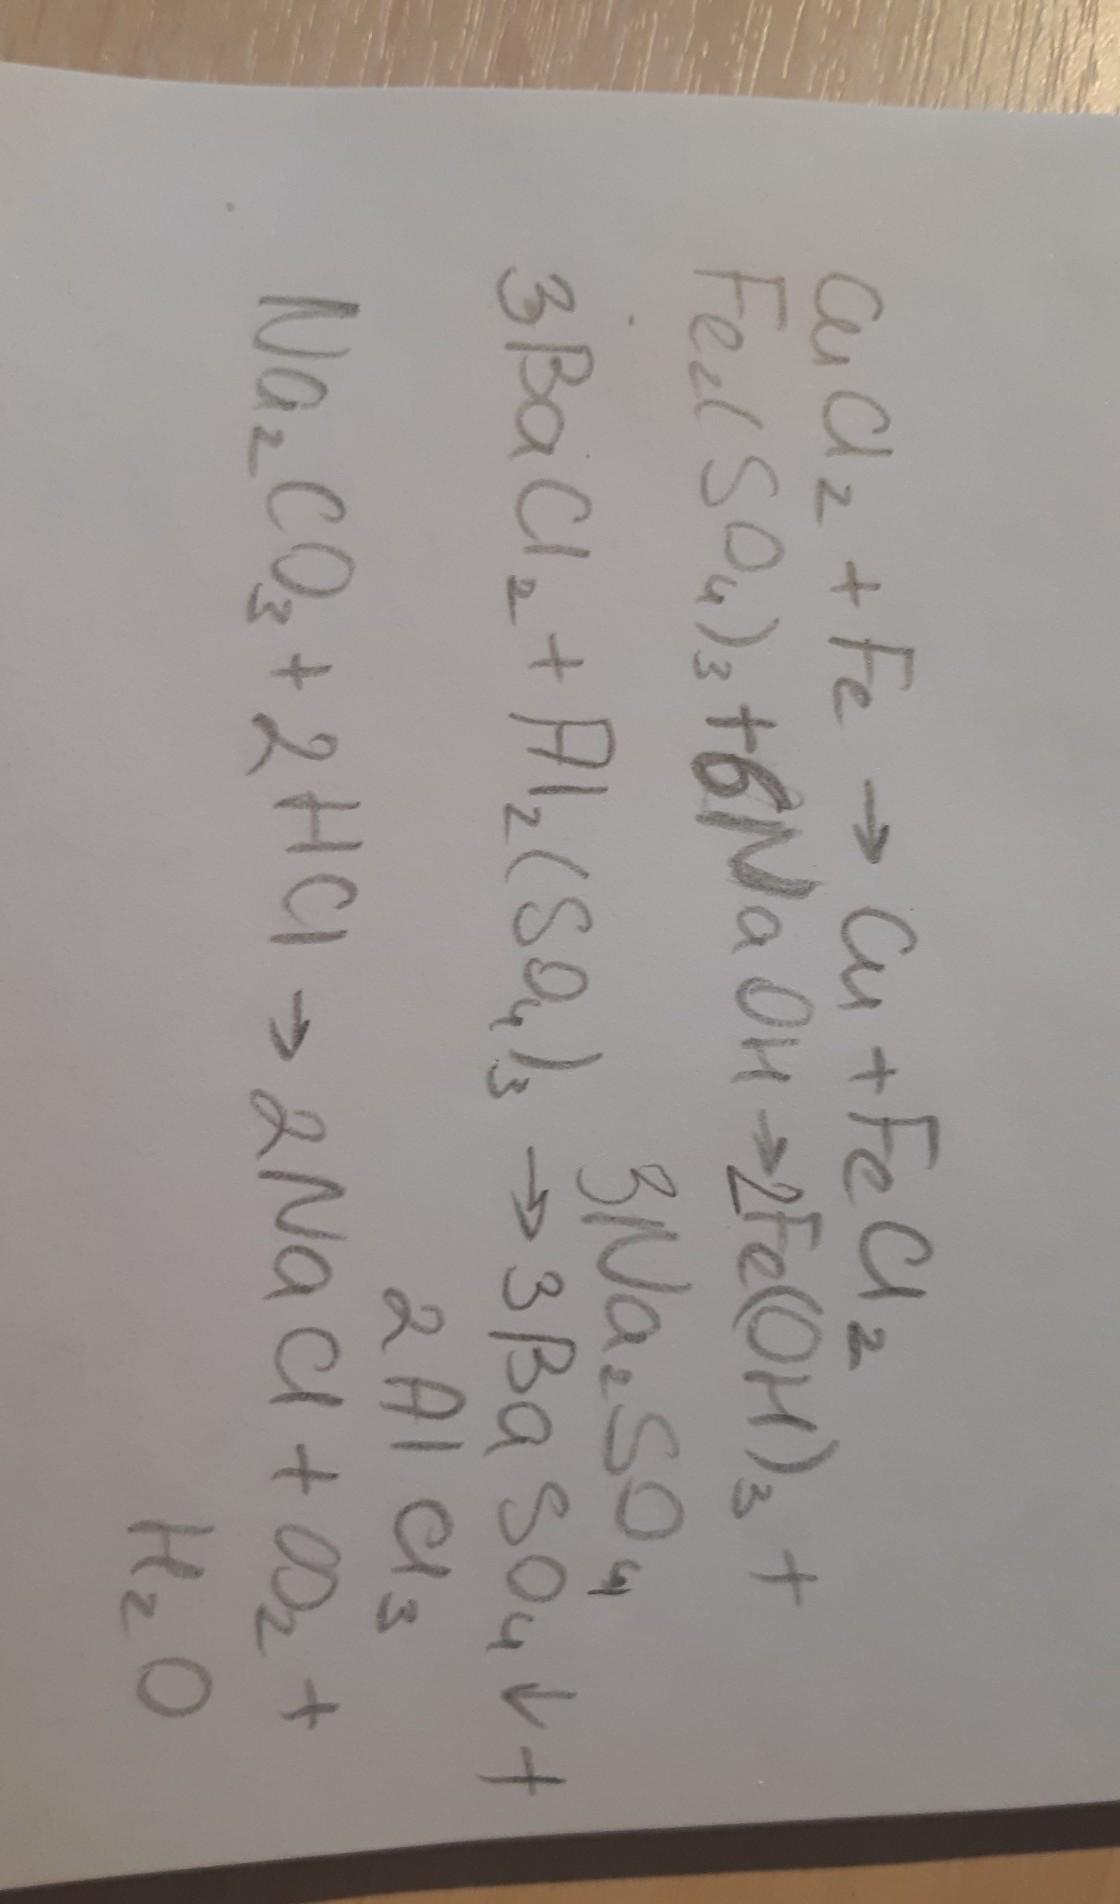 CuCl₂ + Fe → Cu + FeCl₂
Fe₂(SO₄)₃ + 6NaOH → 2Fe(OH)₃ +
3Na₂SO₄
3BaCl₂ + Al₂(SO₄)₃ → 3BaSO₄↓ +
2AlCl₃
Na₂CO₃ + 2HCl → 2NaCl + CO₂ +
H₂O